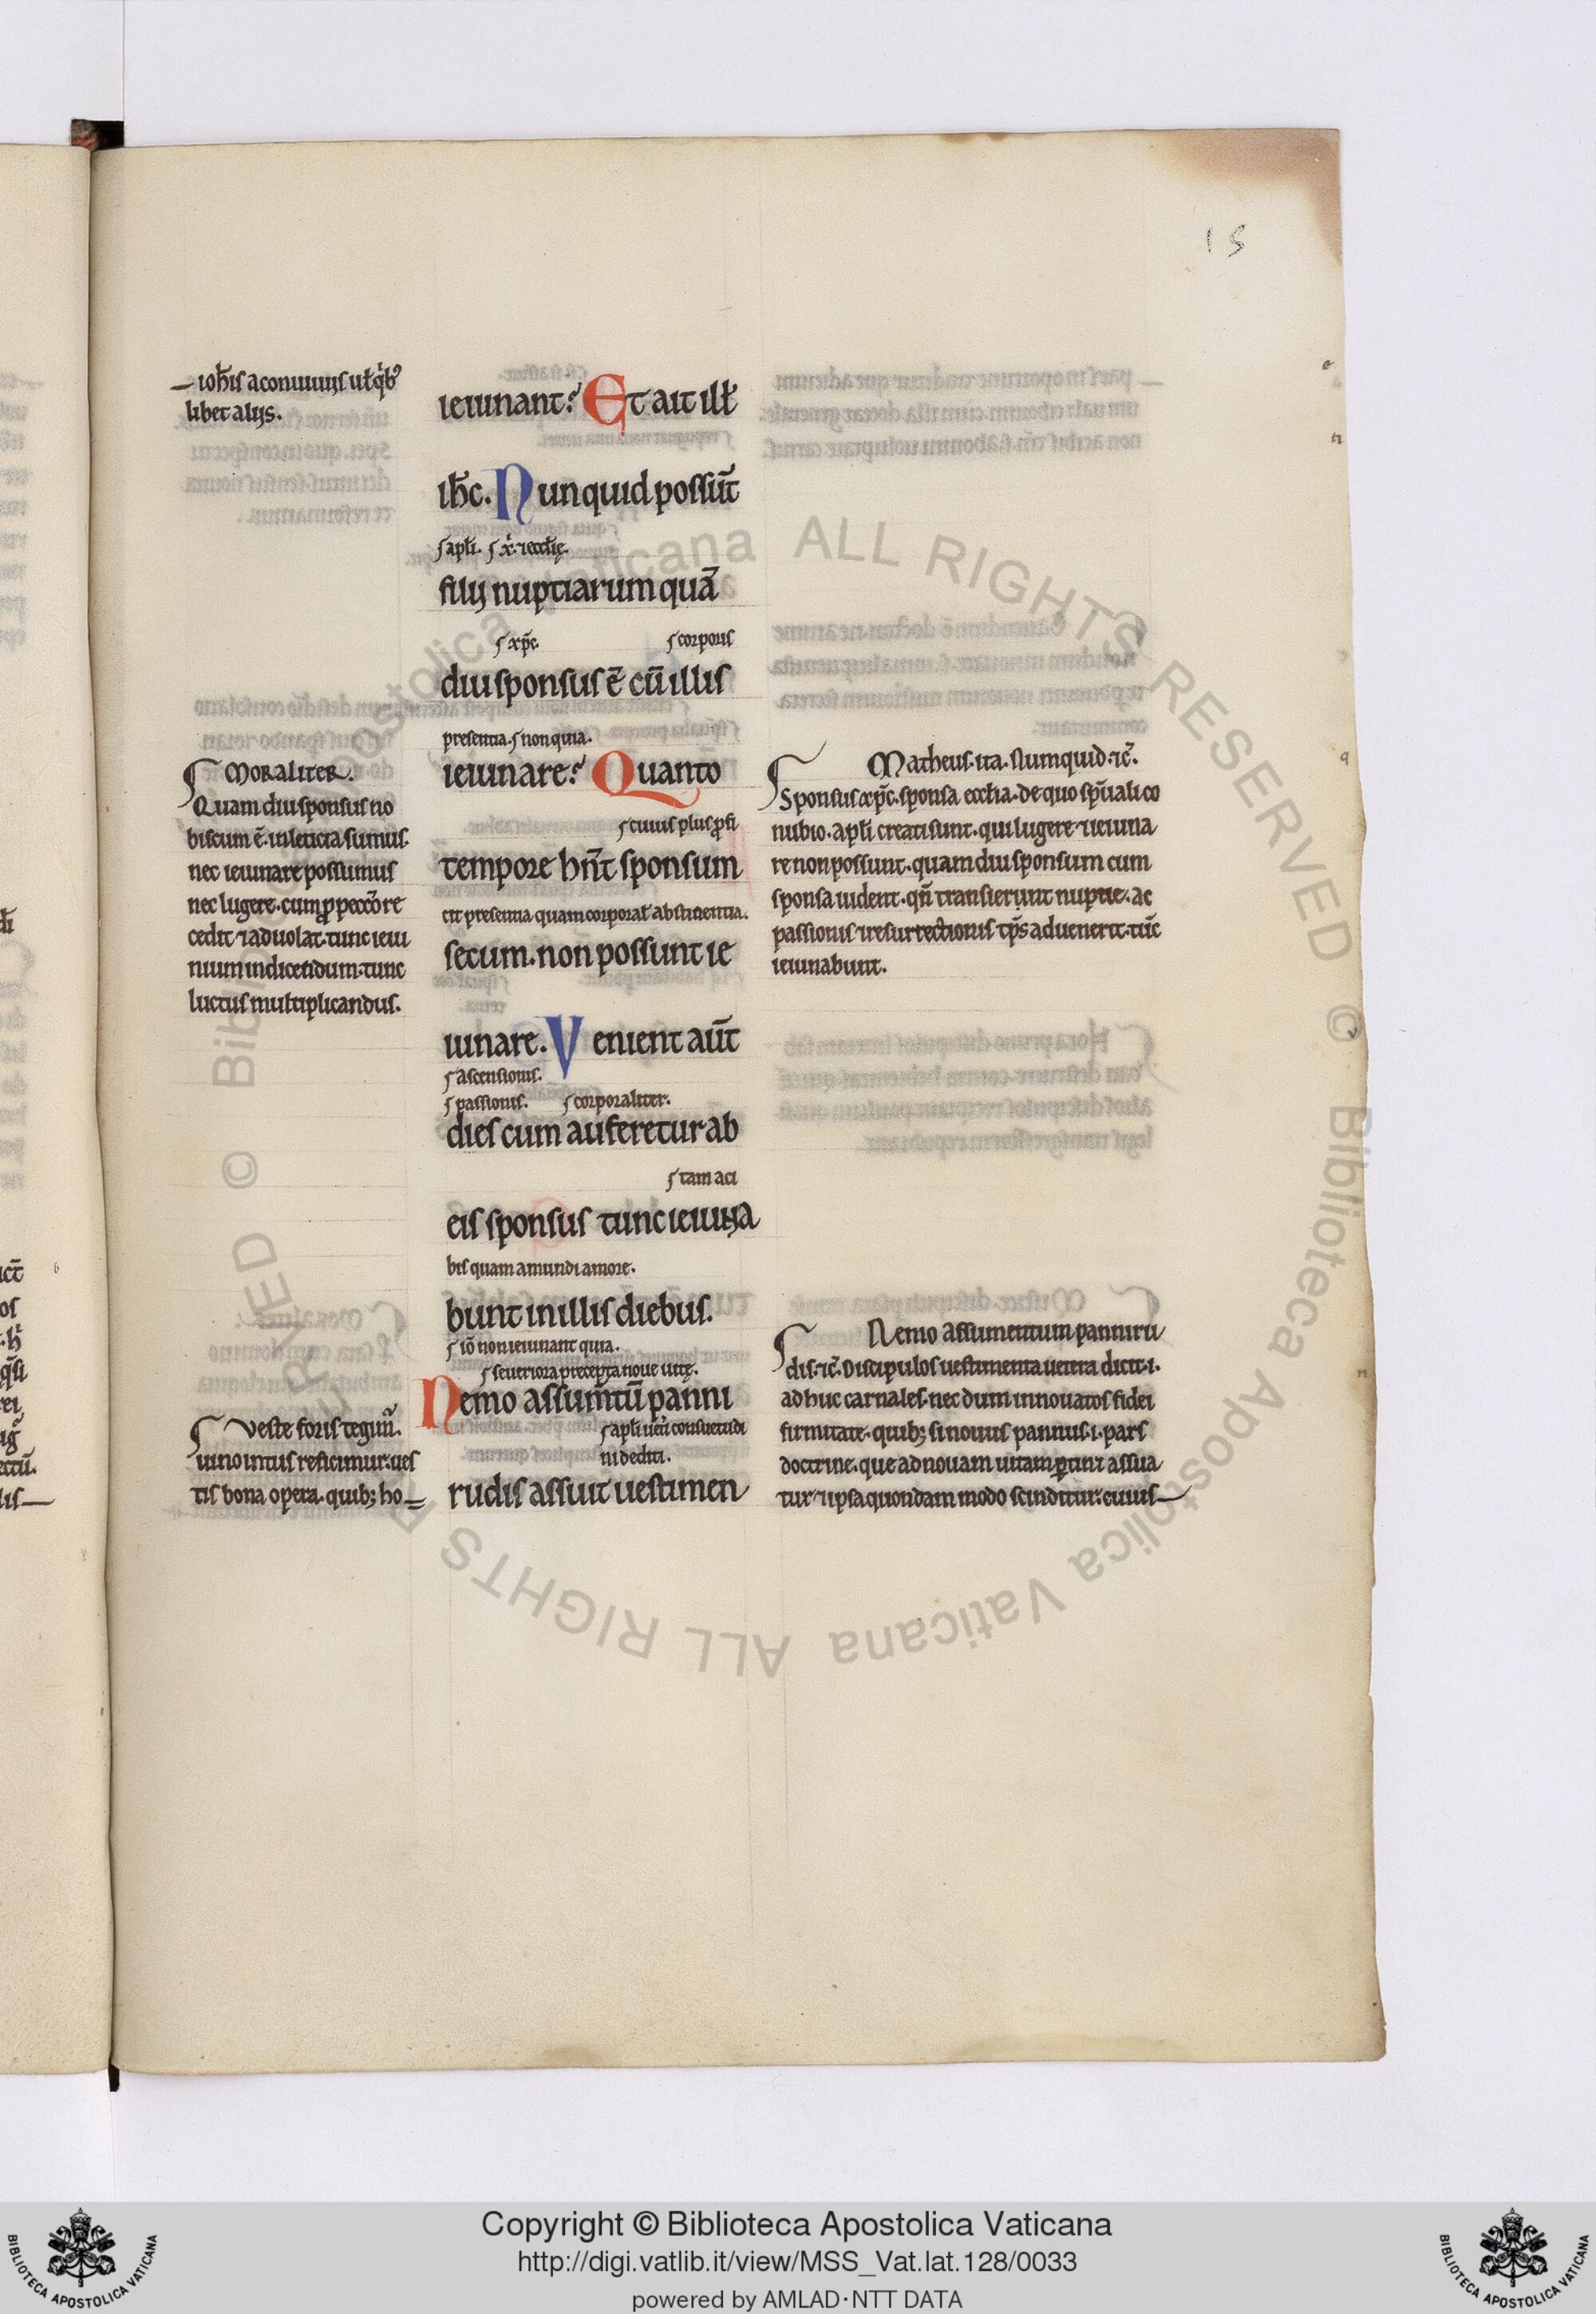 15
— ioh̄is a conuiuiis ul̄ q̇b᷒
libet aliis.
ieiunant? Et ait ill̄
ih̄c. Nunquid possūt
ſ apl̄i. ſ x̄. ⁊ eccl̄ię.
filii nuptiarum quā
ſ xp̄c. ſ corporis
diu sponsus ē cū illis
presentia. ſ non quia.
ieiunare? Quanto
ſ cuius plus ꝓfi
tempore hn̄t sponsum
cit presentia quam corporal̄ abstinentia.
secum. non possunt ie
iunare. Venient aūt
ſ ascensionis.
ſ passionis. ſ corporaliter.
dies cum auferetur ab
ſ tam a ci
eis sponsus tunc ieiuna
bis quam a mundi amore.
bunt in illis diebus.
ſ iō non ieiunant quia.
ſ seueriora precepta noue uitę.
Nemo assum̄tū panni
ſ apl̄i uet̄i consuetudi
ni dediti.
rudis assuit uestimen
Moraliter.
Quam diu sponsus no
biscum ē. in leticia sumus.
nec ieiunare possumus
nec lugere. cum ꝓ peccōre
cedit ⁊ aduolat. tunc ieiu
nium indicendum. tunc
luctus multiplicandus.
Veste foris tegim̄.
uino intus reficimur. ues
tis bona opera. quib; ho=
Matheus. ita. Numquid. ⁊c̄.
Sponsus xp̄c. sponsa eccl̄ia. de quo sp̄uali co
nubio. apl̄i creati sunt. qui lugere ⁊ ieiuna
re non possunt. quam diu sponsum cum
sponsa uident. qn̄ transierunt nuptie. ac
passionis ⁊ resurrectionis tp̄s aduenerit. tūc
ieiunabunt.
Nemo assumentum panni ru
dis. ⁊c̄. Discipulos uestimenta uetera dicit. i.
adhuc carnales. nec dum innouatos fidei
firmitate. quib; si nouus pannus. i. pars
doctrine. que ad nouam uitam ꝑtinꝫ assua
tur ⁊ ipsa quondam modo scinditur. cuius —
Copyright © Biblioteca Apostolica Vaticana
http://digi.vatlib.it/view/MSS_Vat.lat.128/0033
powered by AMLAD·NTT DATA
BIBLIOTECA APOSTOLICA VATICANA
BIBLIOTECA APOSTOLICA VATICANA
© Biblioteca Apostolica Vaticana ALL RIGHTS RESERVED © Biblioteca Apostolica Vaticana ALL RIGHTS RESERVED